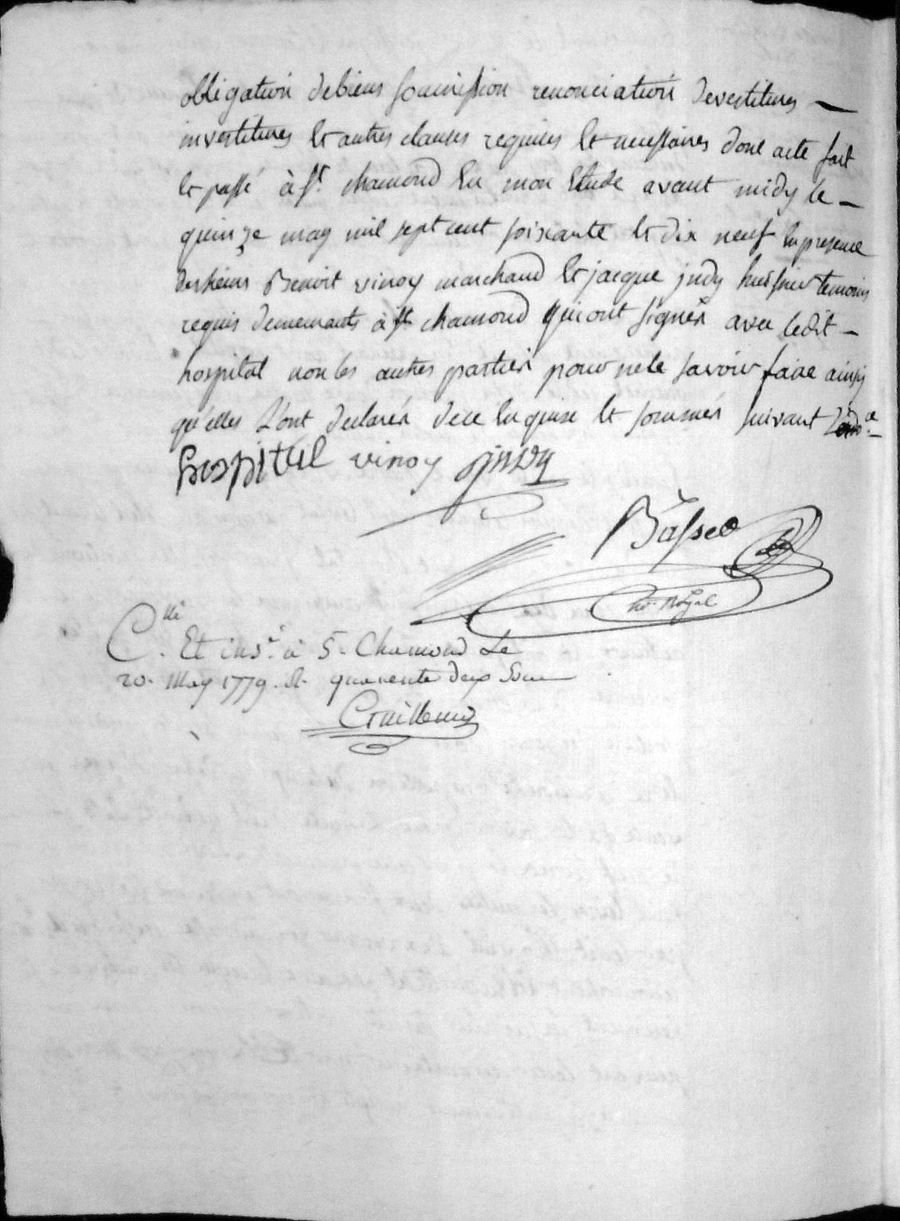 obligation de biens soumission renonciation devestitures
investitures et autres clauses requises et necessaires dont acte fait
et passé à St. chamond En mon Etude avant midy le
quinze may mil sept cent soixante et dix neuf En presence
des sieurs Benoit vinoy marchand et jacque judy huissier temoins
requis demeurants à St chamond qui ont signés avec ledit
hospital non les autres parties pour ne le savoir faire ainsy
qu'elles L'ont declarés de ce Enquise et sommés suivant
hospital vinoy judy
no.re Royal
C.lle Et ins.é à S. Chamond Le
20. May 1779. R. quarente deux Sous